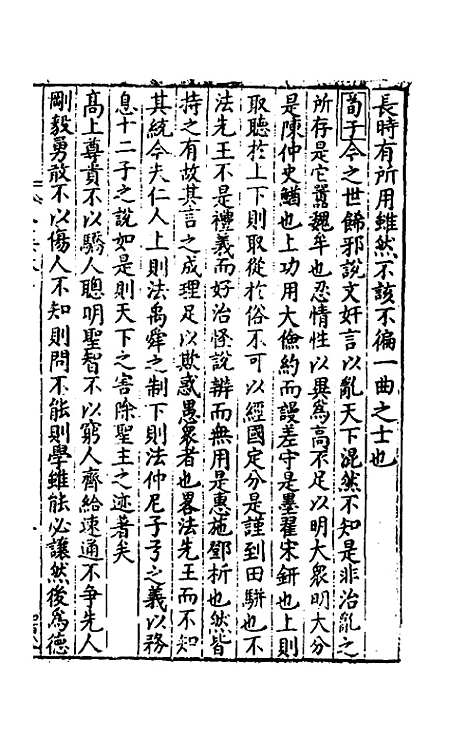 長時有所用雖然不該不徧一曲之士也
荀子今之世餙邪說文奸言以亂天下混然不知是非治亂之
所存是它嚻魏牟也忍情性以異爲高不足以明大衆明大分
是陳仲史鰌也上功用大儉約而謾差守是墨翟宋鈃也上則
取聽於上下則取從於俗不可以經國定分是謹到田駢也不
法先王不是禮義而好治怪說辨而無用是惠施鄧析也然皆
持之有故其言之成理足以欺惑愚衆者也畧法先王而不知
其統今夫仁人上則法禹舜之制下則法仲尼子弓之義以務
息十二子之說如是則天下之害除聖王之迹著矣
高上尊貴不以驕人聰明聖智不以窮人齊給速通不争先人
剛毅勇敢不以傷人不知則問不能則學雖能必讓然後爲德